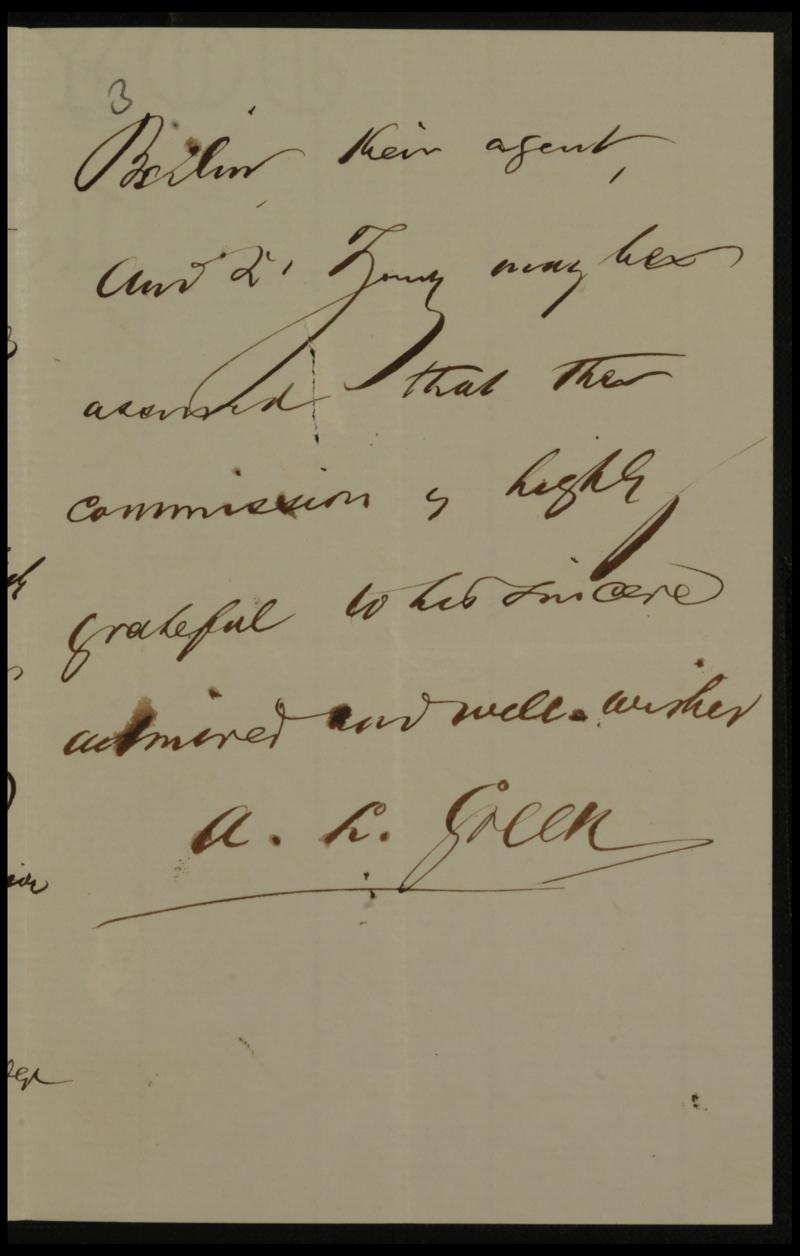 3
Berlin their agent,
and Dr Zunz may be
assured that the
commission is highly
grateful to his sincere
admirer and well-wisher
A. L. Green